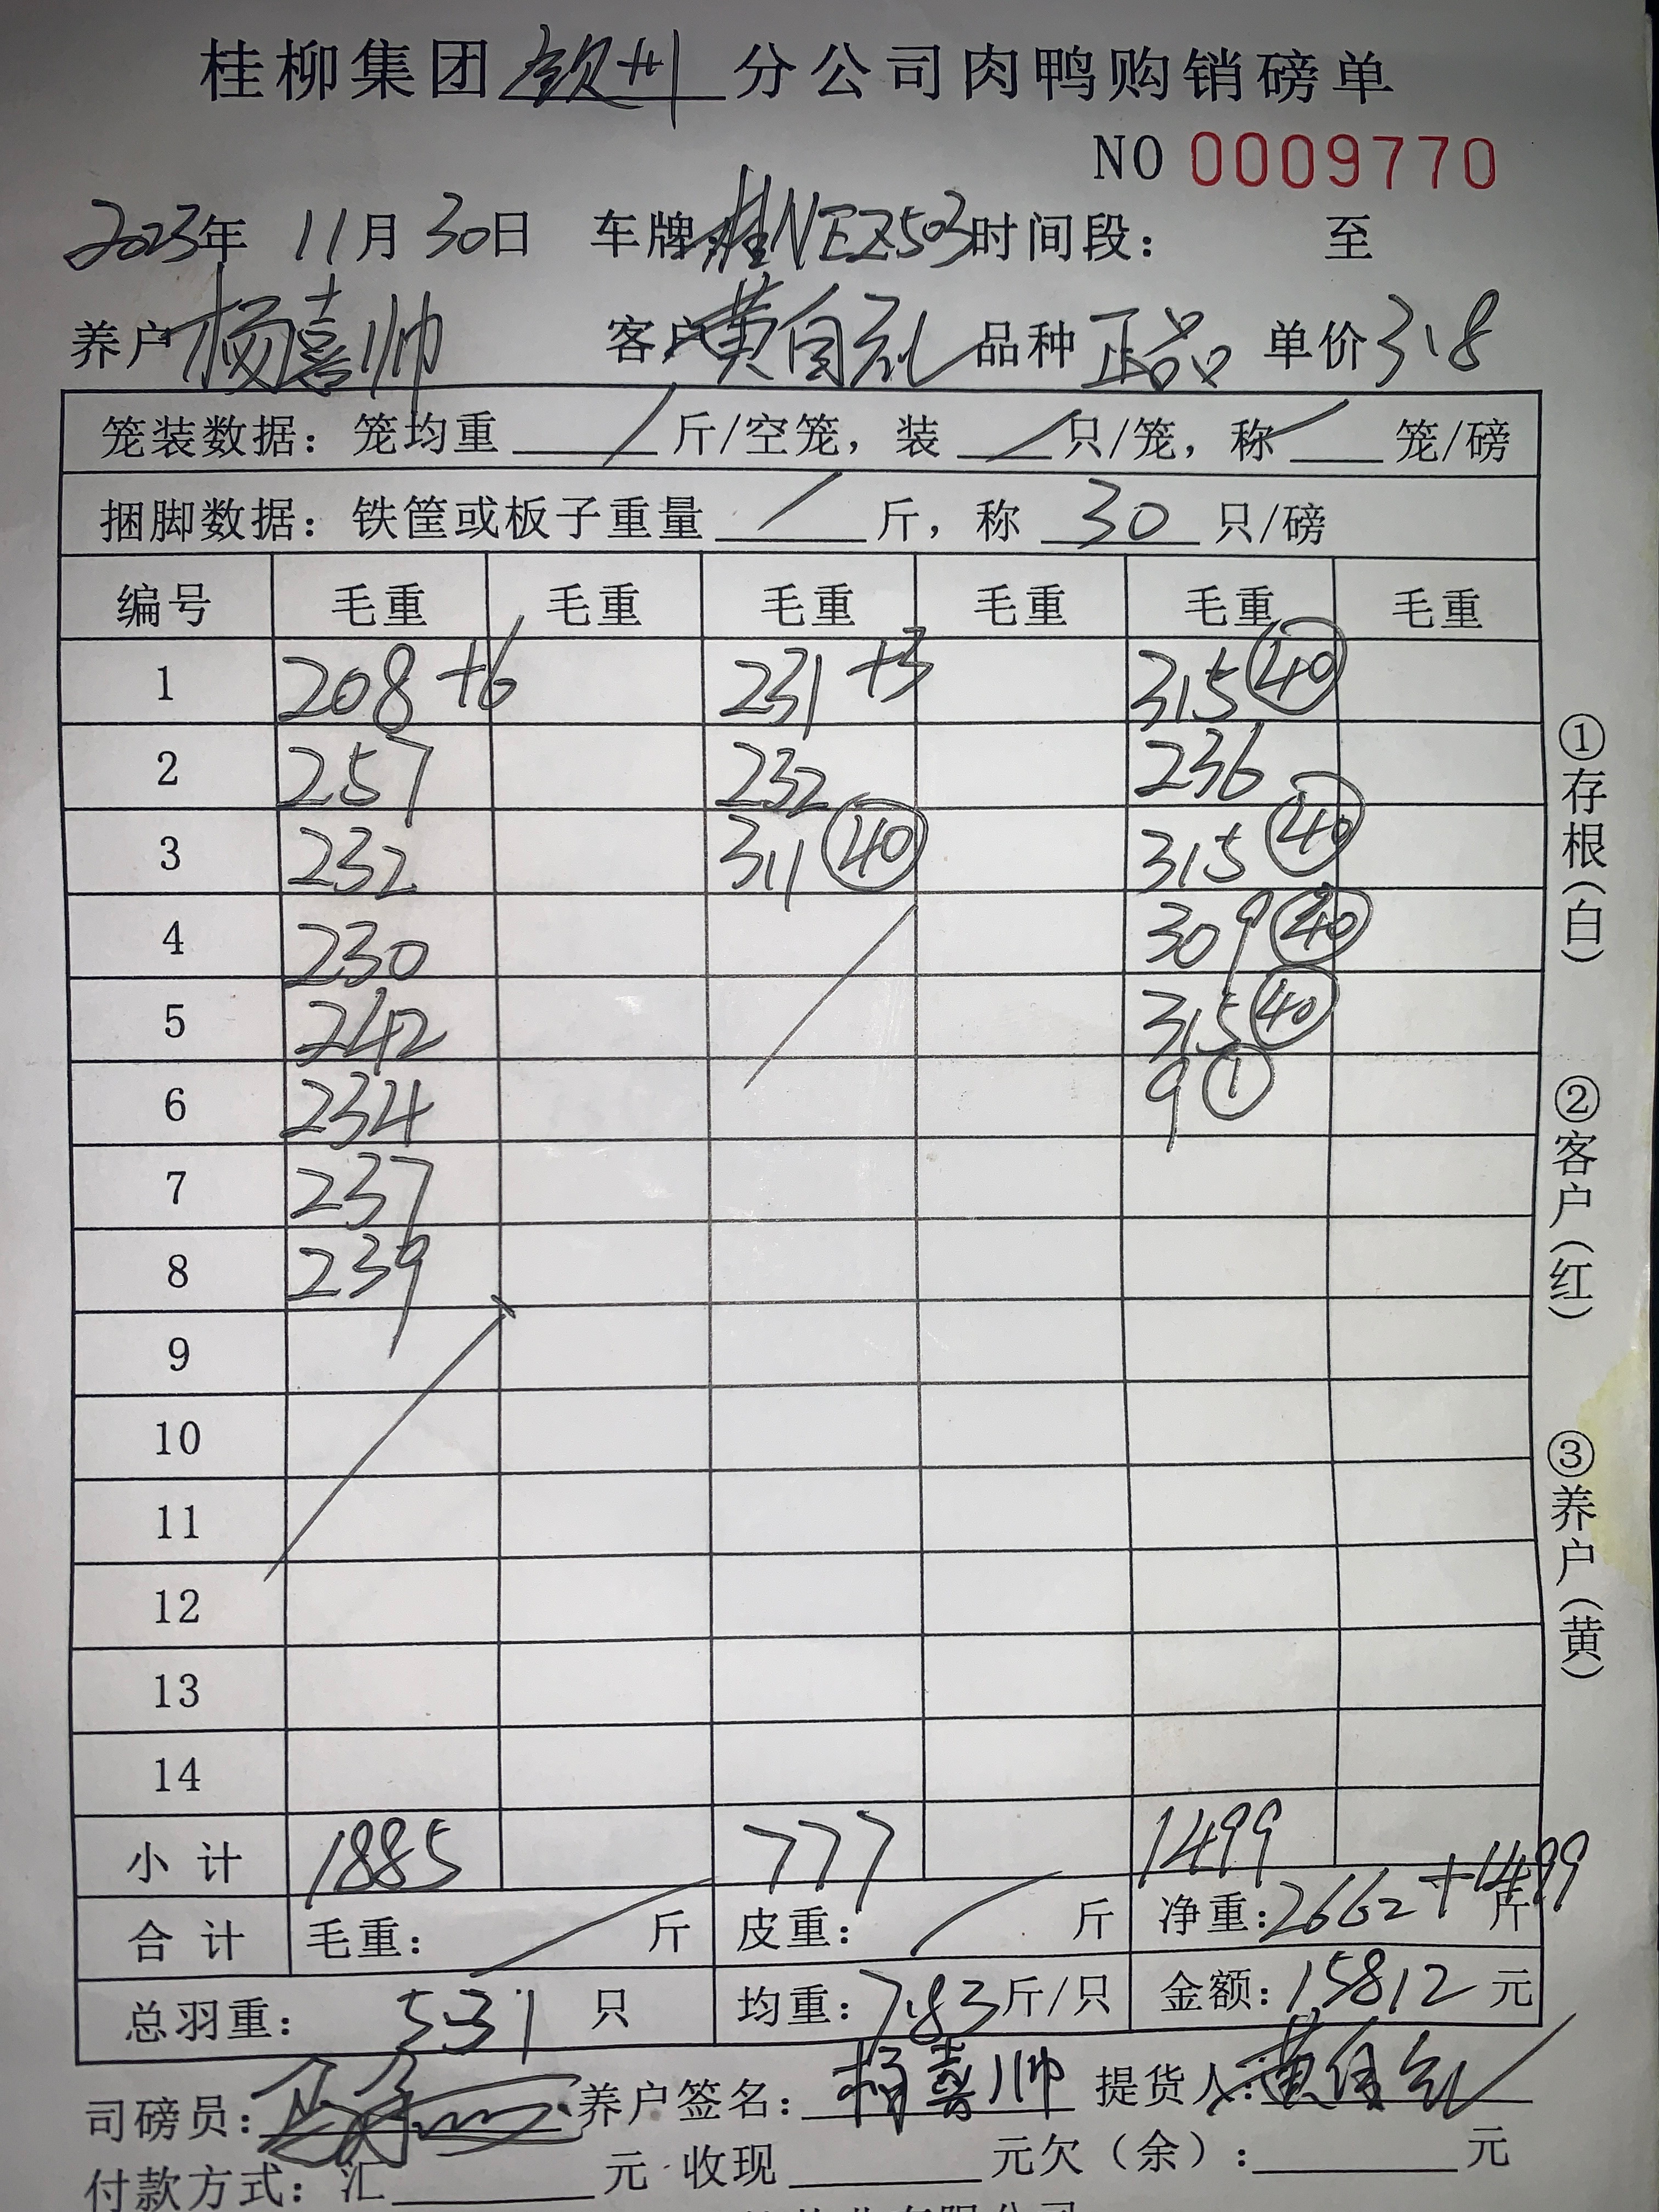 桂柳集团钦州分公司肉鸭购销磅单
NO 0009770
2023年 11月 30日 车牌桂NEZ503时间段： 至
养户杨喜帅 客户黄自礼 品种正品 单价3.8
笼装数据：笼均重 / 斤/空笼，装 / 只/笼，称 / 笼/磅
捆脚数据：铁筐或板子重量 / 斤，称 30 只/磅
编号 毛重 毛重 毛重 毛重 毛重 毛重
1 208+6 231+3 315 40
2 257 232 236
3 232 311 40 315 40
4 230 309 40
5 242 315 40
6 234 9 1
7 237
8 239
9
10
11
12
13
14
小计 1885 777 1499
合计 毛重： / 斤 皮重： / 斤 净重：2662+1499斤
总羽重： 531 只 均重：7.83斤/只 金额：15812元
司磅员： 养户签名：杨喜帅 提货人：黄自礼
付款方式：汇 元 收现 元欠（余）： 元
①存根（白）
②客户（红）
③养户（黄）